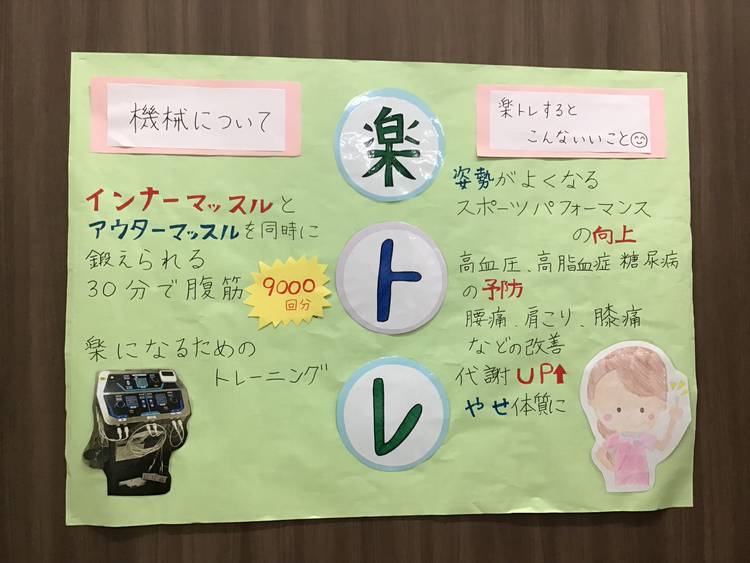 楽トレ
機械について
インナーマッスルと
アウターマッスルを同時に
鍛えられる
30分で腹筋
9000
回分
楽になるための
トレーニング
楽トレすると
こんないいこと☺
姿勢がよくなる
スポーツパフォーマンス
の向上
高血圧、高脂血症 糖尿病
の予防
腰痛、肩こり、膝痛
などの改善
代謝UP⬆
やせ体質に